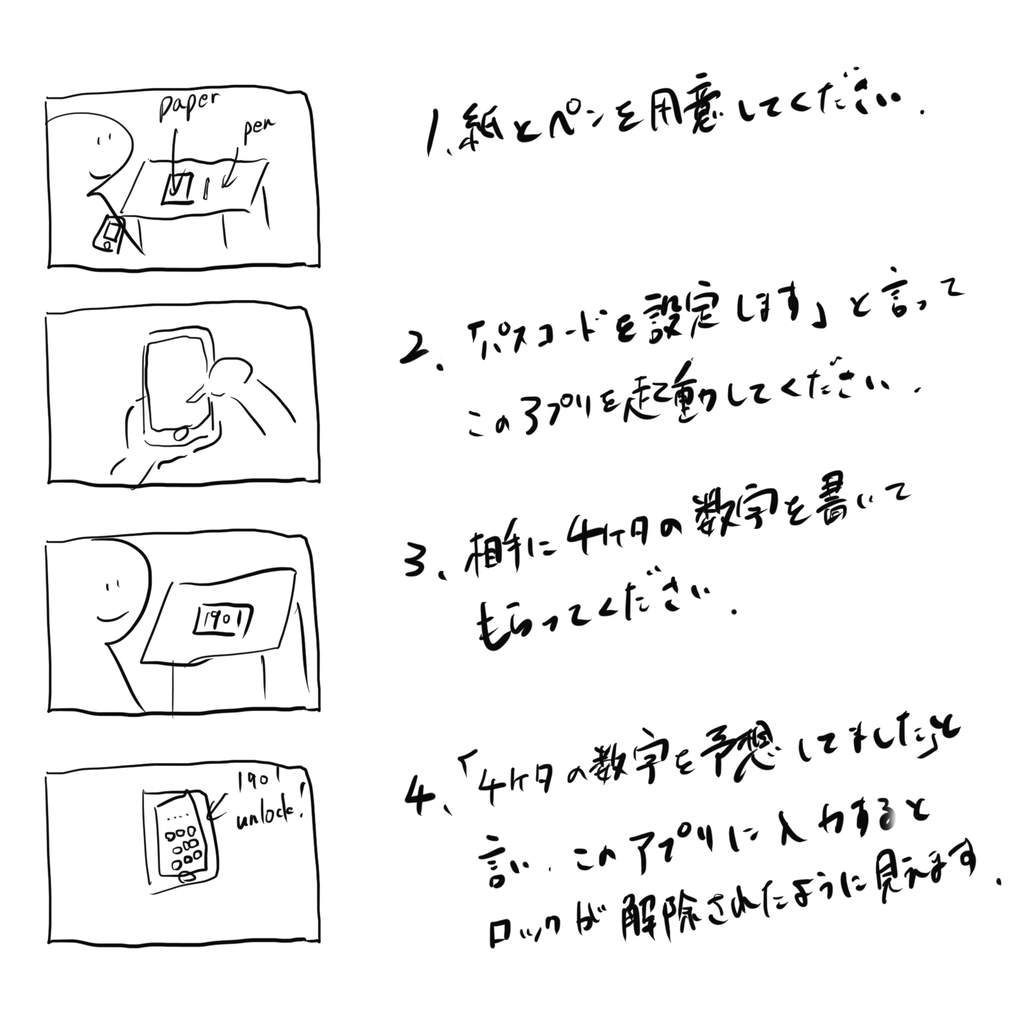 paper
pen
1、紙とペンを用意してください.
2、「パスコードを設定します」と言って
このアプリを起動してください.
3、相手に4ケタの数字を書いて
もらってください.
1901
4、「4ケタの数字を予想してました」と
言い、このアプリに入力すると
ロックが解除されたように見えます.
1901
unlock!